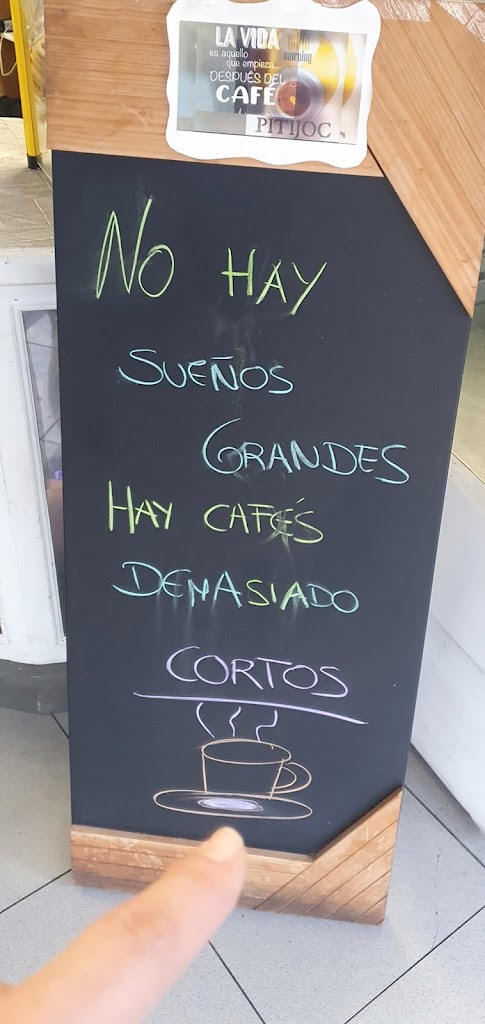 LA VIDA
es aquello
que empieza...
DESPUÉS DEL
CAFÉ
morning
PITIJOC
NO HAY
SUEÑOS
GRANDES
HAY CAFÉS
DEMASIADO
CORTOS